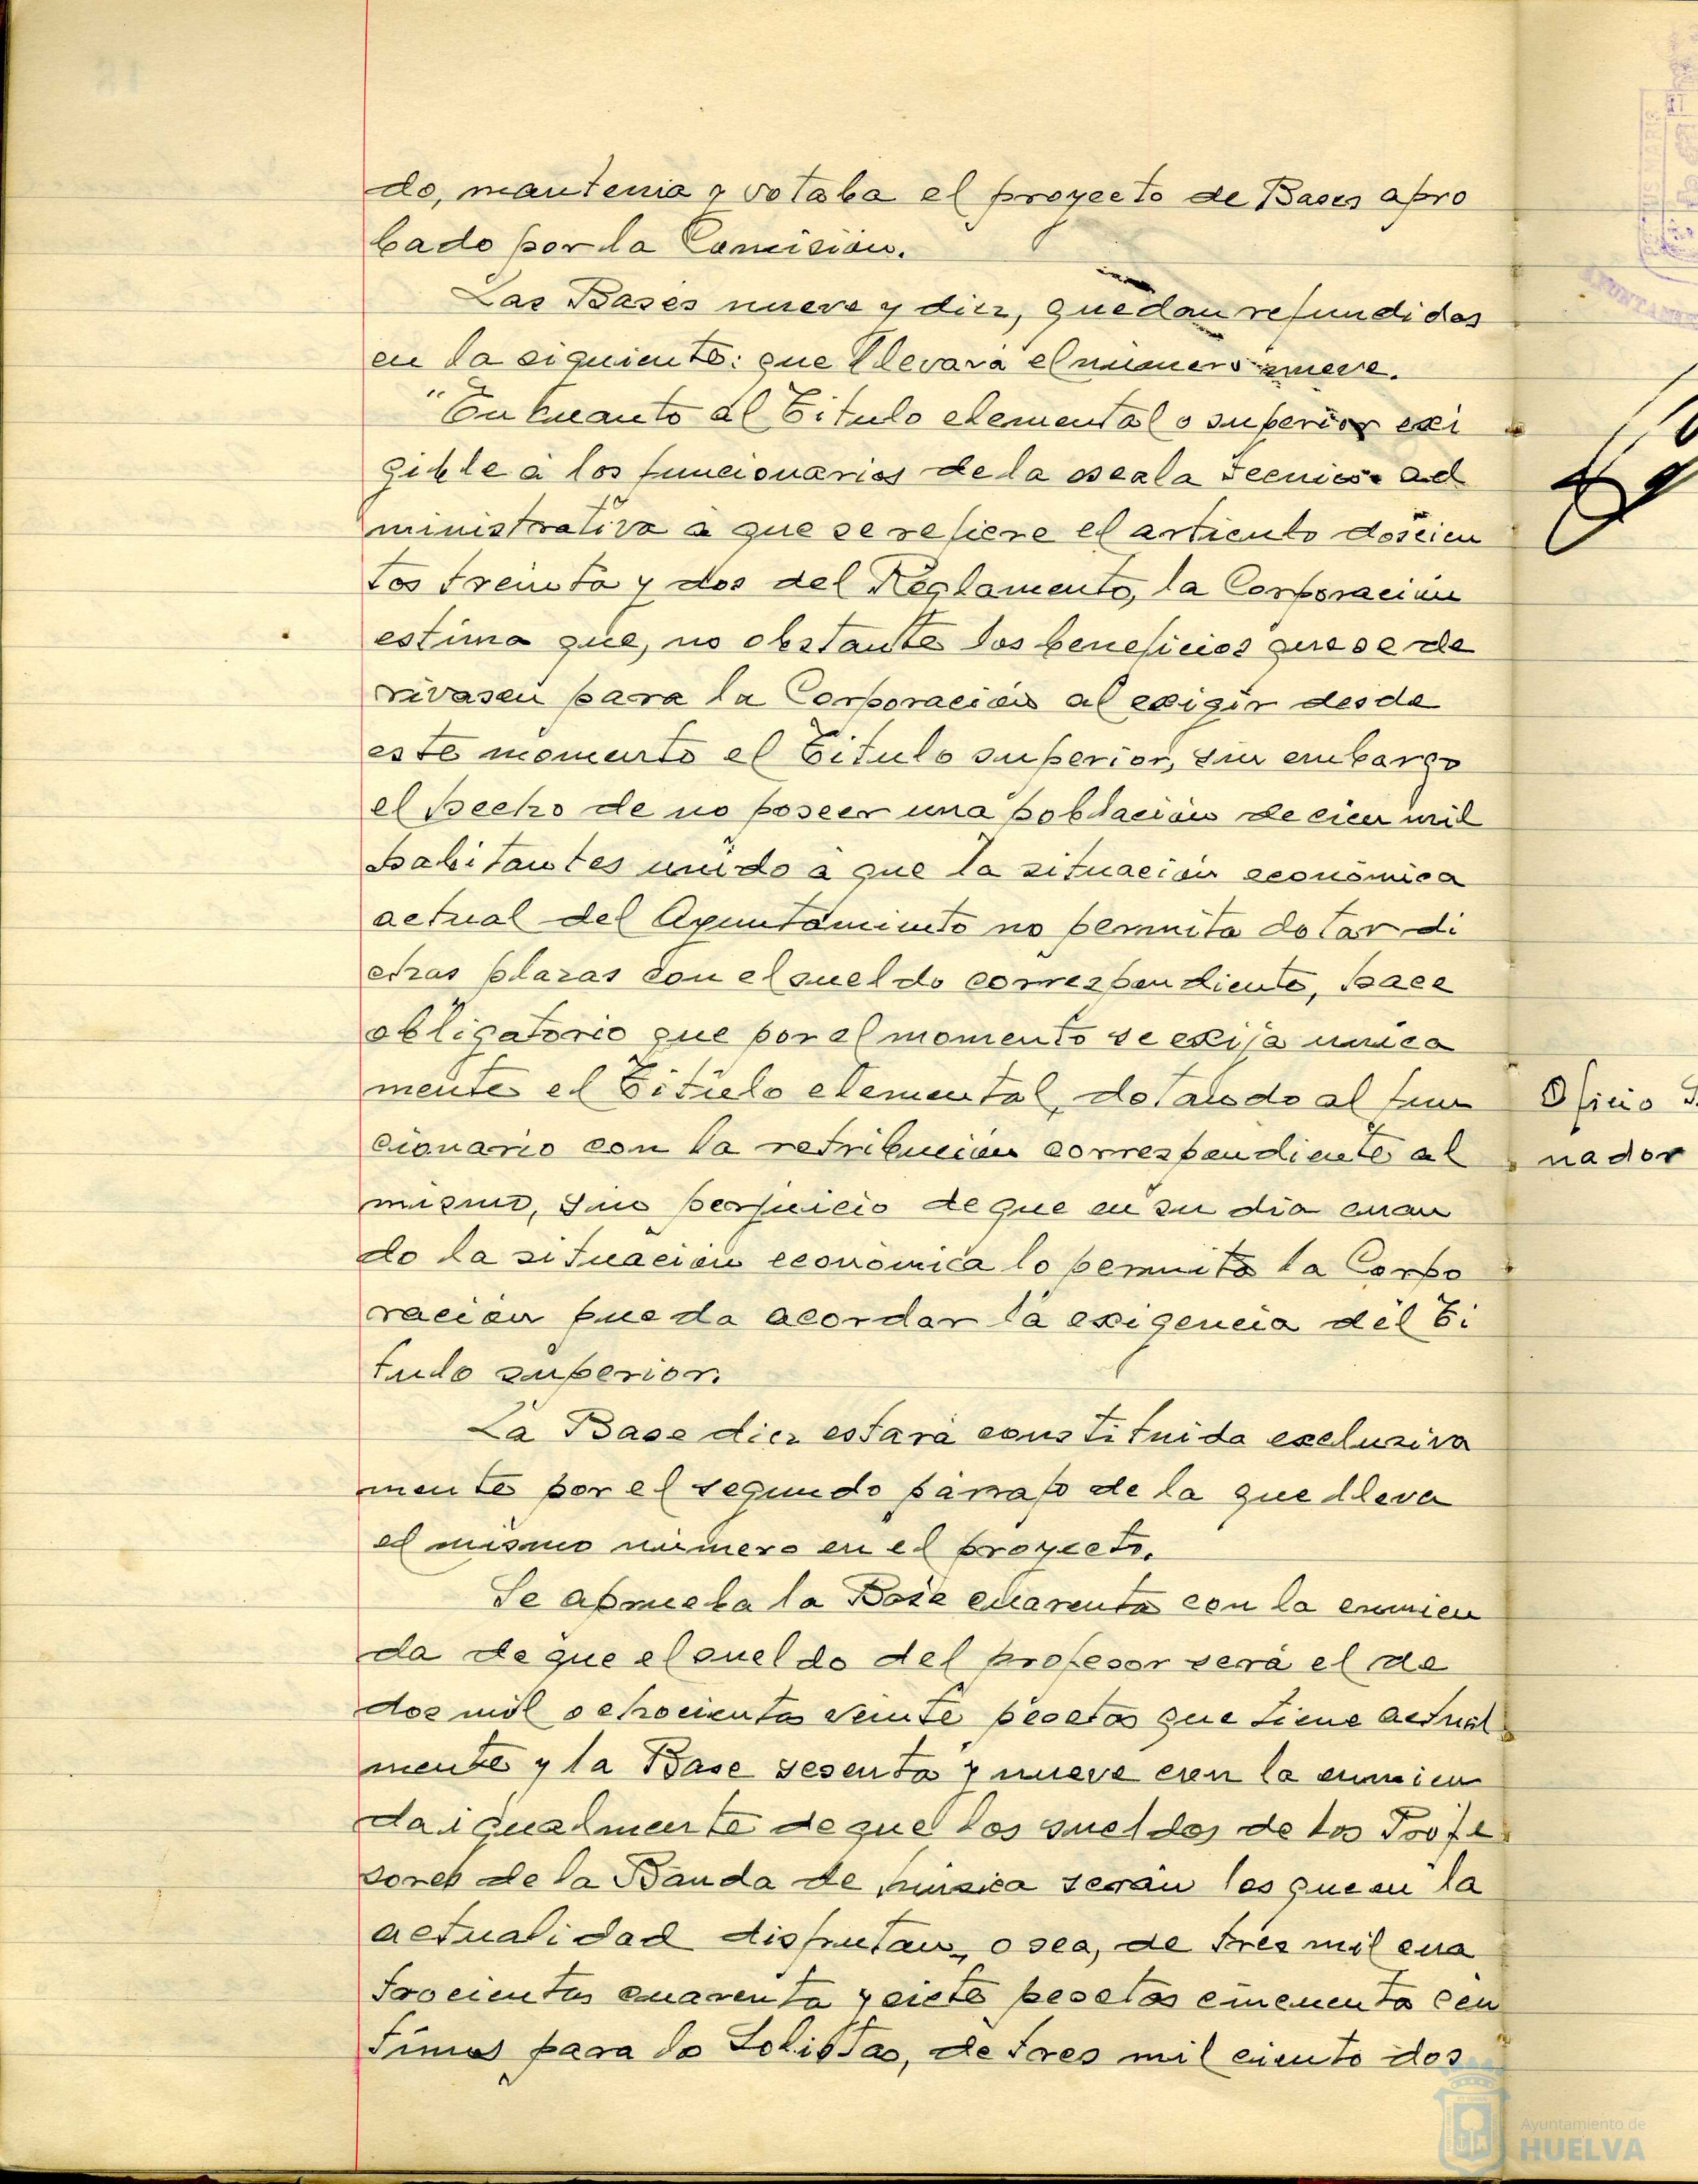 do, mantenia y votaba el proyecto de Bases apro
bado por la Comisión.
Las Bases nueve y diez, quedan refundidas
en la siguiente: que llevará el número nueve.
"En cuanto al Titulo elemental o superior exi
gible á los funcionarios de la escala Tecnico-ad
ministrativa á que se refiere el articulo doscien
tos treinta y dos del Reglamento, la Corporación
estima que, no obstante los beneficios que se de
rivasen para la Corporación al exigir desde
este momento el Titulo superior, sin embargo
el hecho de no poseer una población de cien mil
habitantes unido á que la situación económica
actual del Ayuntamiento no permita dotar di
chas plazas con el sueldo correspondiente, hace
obligatorio que por el momento se exija unica
mente el Titulo elemental, dotando al fun
cionario con la retribución correspondiente al
mismo, sin perjuicio de que en su dia cuan
do la situación económica lo permita la Corpo
ración pueda acordar la exigencia del Ti
tulo superior.
La Base diez estará constituida exclusiva
mente por el segundo párrafo de la que lleva
el mismo número en el proyecto.
Se aprueba la Base cuarenta con la enmien
da de que el sueldo del profesor será el de
dos mil ochocientas veinte pesetas que tiene actual
mente y la Base sesenta y nueve con la enmien
da igualmente de que los sueldos de los Profe
sores de la Banda de música serán los que en la
actualidad disfrutan, o sea, de tres mil cua
trocientas cuarenta y siete pesetas cincuenta cen
timos para lo Solistas, de tres mil ciento dos
Oficio
nador
Ayuntamiento de
HUELVA